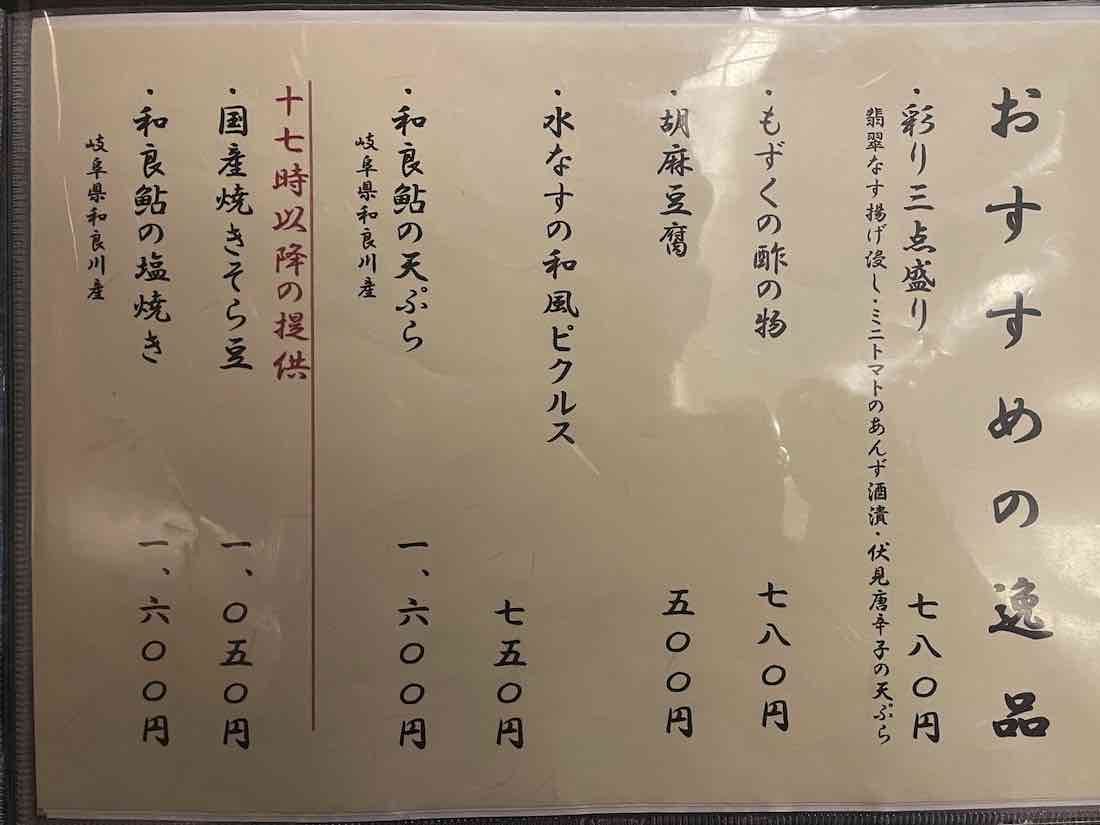 おすすめの逸品
・彩り三点盛り 七八〇円
翡翠なす揚げ浸し・ミニトマトのあんず酒漬・伏見唐辛子の天ぷら
・もずくの酢の物 七八〇円
・胡麻豆腐 五〇〇円
・水なすの和風ピクルス
七五〇円
・和良鮎の天ぷら 一、六〇〇円
岐阜県和良川産
十七時以降の提供
・国産焼きそら豆 一、〇五〇円
・和良鮎の塩焼き 一、六〇〇円
岐阜県和良川産